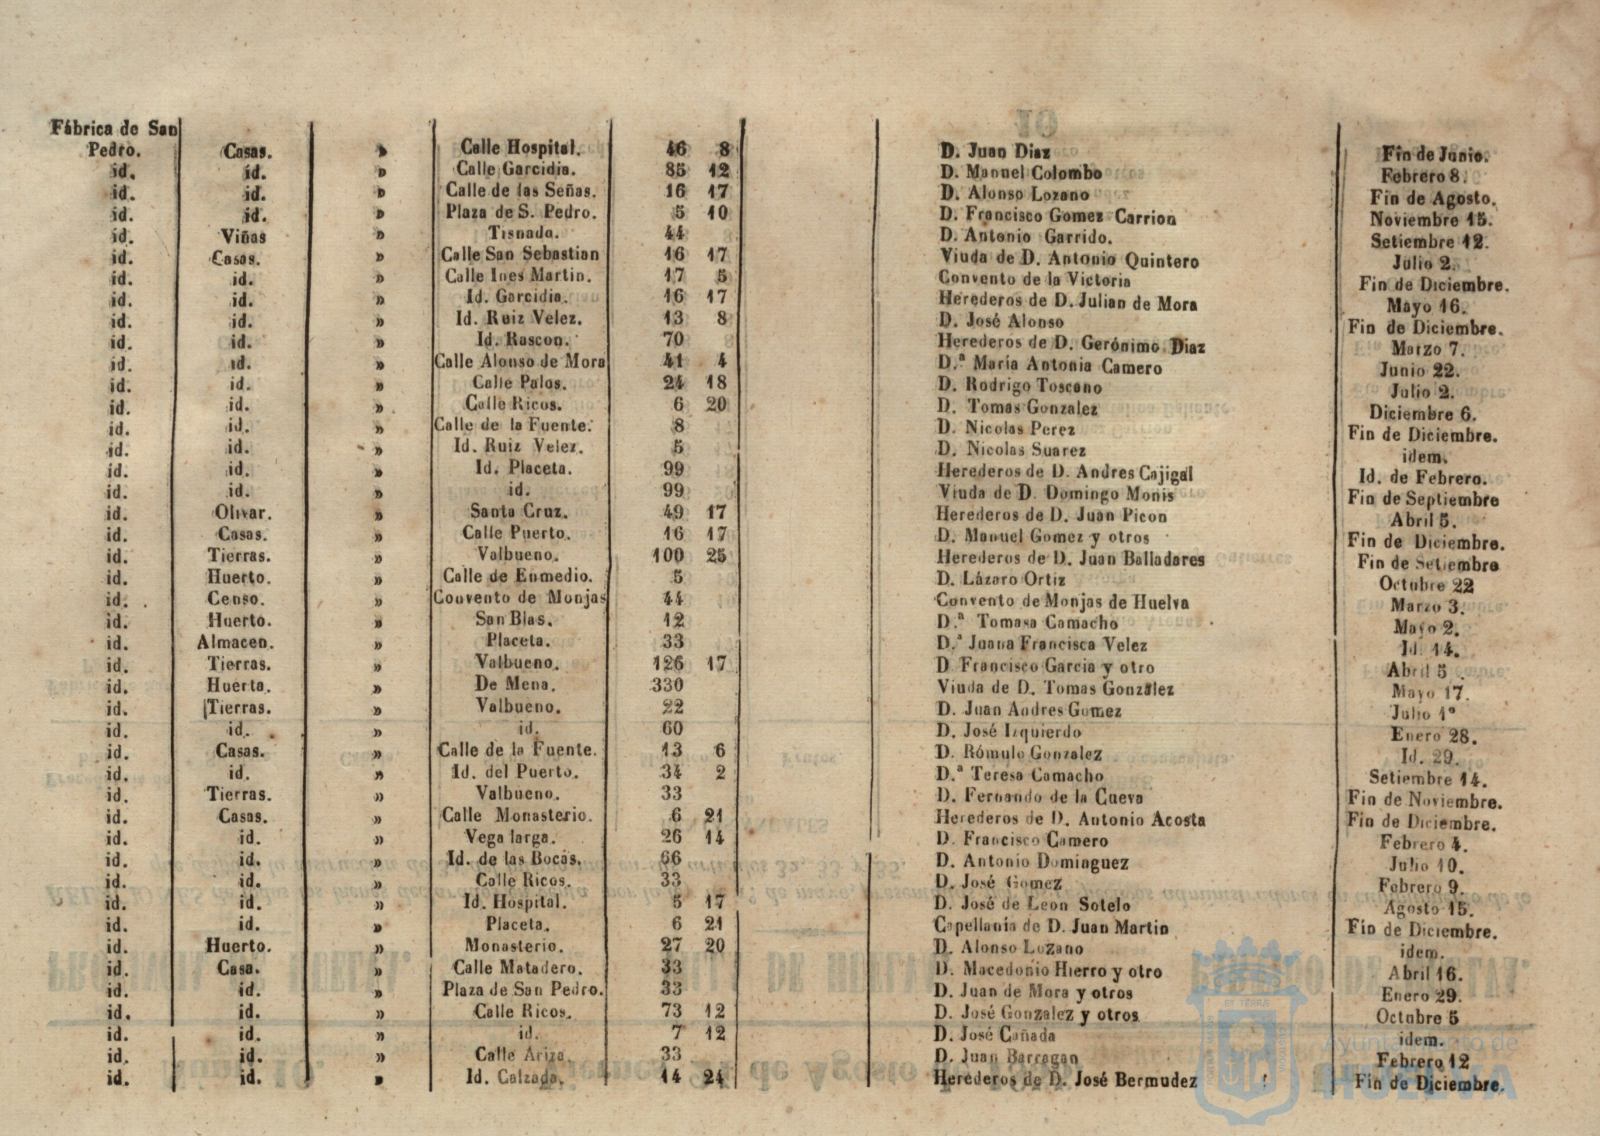 10
Fábrica de San
Pedro. Casas. » Calle Hospital. 46 8 D. Juan Diaz Fin de Junio.
id. id. » Calle Garcidia. 85 12 D. Manuel Colombo Febrero 8.
id. id. » Calle de las Señas. 16 17 D. Alonso Lozano Fin de Agosto.
id. id. » Plaza de S. Pedro. 5 10 D. Francisco Gomez Carrion Noviembre 15.
id. Viñas » Tisnado. 44 D. Antonio Garrido. Setiembre 12.
id. Casas. » Calle San Sebastian 16 17 Viuda de D. Antonio Quintero Julio 2.
id. id. » Calle Ines Martin. 17 5 Convento de la Victoria Fin de Diciembre.
id. id. » Id. Garcidia. 16 17 Herederos de D. Julian de Mora Mayo 16.
id. id. » Id. Ruiz Velez. 13 8 D. José Alonso Fin de Diciembre.
id. id. » Id. Rascon. 70 Herederos de D. Gerónimo Diaz Marzo 7.
id. id. » Calle Alonso de Mora 41 4 D.ª María Antonia Camero Junio 22.
id. id. » Calle Palos. 24 18 D. Rodrigo Toscano Julio 2.
id. id. » Calle Ricos. 6 20 D. Tomas Gonzalez Diciembre 6.
id. id. » Calle de la Fuente. 8 D. Nicolas Perez Fin de Diciembre.
id. id. » Id. Ruiz Velez. 5 D. Nicolas Suarez idem.
id. id. » Id. Placeta. 99 Herederos de D. Andres Cajigal Id. de Febrero.
id. id. » id. 99 Viuda de D. Domingo Monis Fin de Septiembre
id. Olivar. » Santa Cruz. 49 17 Herederos de D. Juan Picon Abril 5.
id. Casas. » Calle Puerto. 16 17 D. Manuel Gomez y otros Fin de Diciembre.
id. Tierras. » Valbueno. 100 25 Herederos de D. Juan Balladares Fin de Setiembre
id. Huerto. » Calle de Enmedio. 5 D. Lázaro Ortiz Octubre 22
id. Censo. » Convento de Monjas 44 Convento de Monjas de Huelva Marzo 3.
id. Huerto. » San Blas. 12 D.ª Tomasa Camacho Mayo 2.
id. Almacen. » Placeta. 33 D.ª Juana Francisca Velez Id. 14.
id. Tierras. » Valbueno. 126 17 D. Francisco Garcia y otro Abril 5
id. Huerta. » De Mena. 330 Viuda de D. Tomas González Mayo 17.
id. Tierras. » Valbueno. 22 D. Juan Andres Gomez Julio 1º
id. id. » id. 60 D. José Izquierdo Enero 28.
id. Casas. » Calle de la Fuente. 13 6 D. Rómulo Gonzalez Id. 29.
id. id. » Id. del Puerto. 34 2 D.ª Teresa Camacho Setiembre 14.
id. Tierras. » Valbueno. 33 D. Fernando de la Cueva Fin de Noviembre.
id. Casas. » Calle Monasterio. 6 21 Herederos de D. Antonio Acosta Fin de Diciembre.
id. id. » Vega larga. 26 14 D. Francisco Camero Febrero 4.
id. id. » Id. de las Bocas. 66 D. Antonio Dominguez Julio 10.
id. id. » Calle Ricos. 33 D. José Gomez Febrero 9.
id. id. » Id. Hospital. 5 17 D. José de Leon Sotelo Agosto 15.
id. id. » Placeta. 6 21 Capellanía de D. Juan Martin Fin de Diciembre.
id. Huerto. » Monasterio. 27 20 D. Alonso Lozano idem.
id. Casa. » Calle Matadero. 33 D. Macedonio Hierro y otro Abril 16.
id. id. » Plaza de San Pedro. 33 D. Juan de Mora y otros Enero 29.
id. id. » Calle Ricos. 73 12 D. José Gonzalez y otros Octubre 5
id. id. » id. 7 12 D. José Cañada idem.
id. id. » Calle Ariza. 33 D. Juan Barragan Febrero 12
id. id. » Id. Calzada. 14 24 Herederos de D. José Bermudez Fin de Diciembre.
Ayuntamiento de
HUELVA